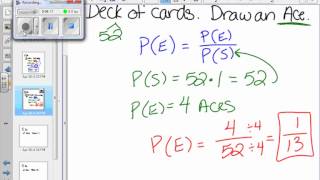 Deck of cards. Draw an Ace.
52
P(E) = P(E)/P(S)
P(S) = 52·1 = 52
P(E) = 4 ACES
P(E) = 4 ÷4 / 52 ÷4 = 1/13